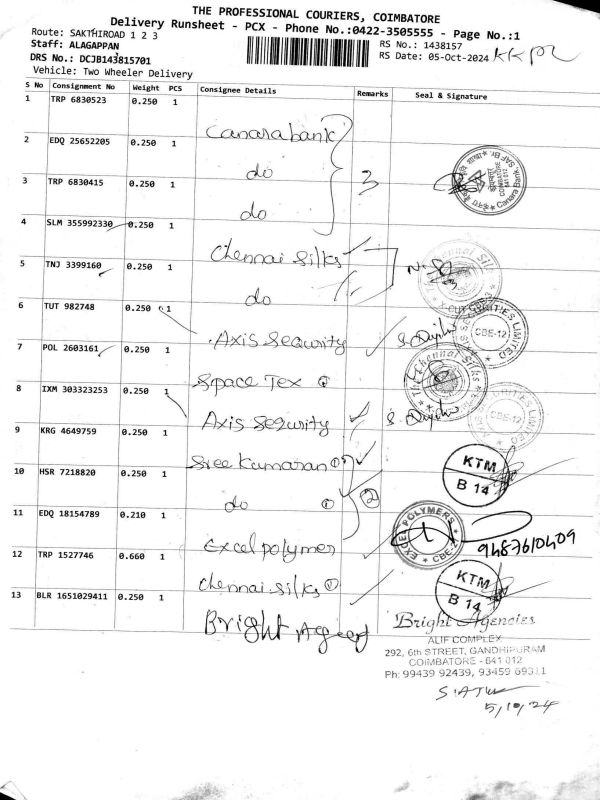 THE PROFESSIONAL COURIERS, COIMBATORE
Delivery Runsheet - PCX - Phone No.:0422-3505555 - Page No.:1
Route: SAKTHIROAD 1 2 3
RS No.: 1438157
Staff: ALAGAPPAN
RS Date: 05-Oct-2024
DRS No.: DCJB143815701
Vehicle: Two Wheeler Delivery
S No Consignment No Weight PCS Consignee Details Remarks Seal & Signature
1 TRP 6830523 0.250 1 Canara bank
2 EDQ 25652205 0.250 1 do
3 TRP 6830415 0.250 1 do 3
Canara Bank
COIMBATORE
641 012
4 SLM 355992330 0.250 1 Chennai Silks
5 TNJ 3399160 0.250 1 do
6 TUT 982748 0.250 1 Axis Sequrity
CBE-12
7 POL 2603161 0.250 1 Space Tex
The Chennai Silks
8 IXM 303323253 0.250 1 Axis Sequrity
CBE-12
9 KRG 4649759 0.250 1 Sree Kumaran 1
KTM
B 14
10 HSR 7218820 0.250 1 do 1 2
11 EDQ 18154789 0.210 1 Excel polymer
EXCEL POLYMERS
9487610409
12 TRP 1527746 0.660 1 Chennai Silks
KTM
B 14
13 BLR 1651029411 0.250 1 Bright Agency
Bright Agencies
ALIF COMPLEX
292, 6th STREET, GANDHIPURAM
COIMBATORE - 641 012
Ph: 99439 92439, 93459 69311
5/10/24